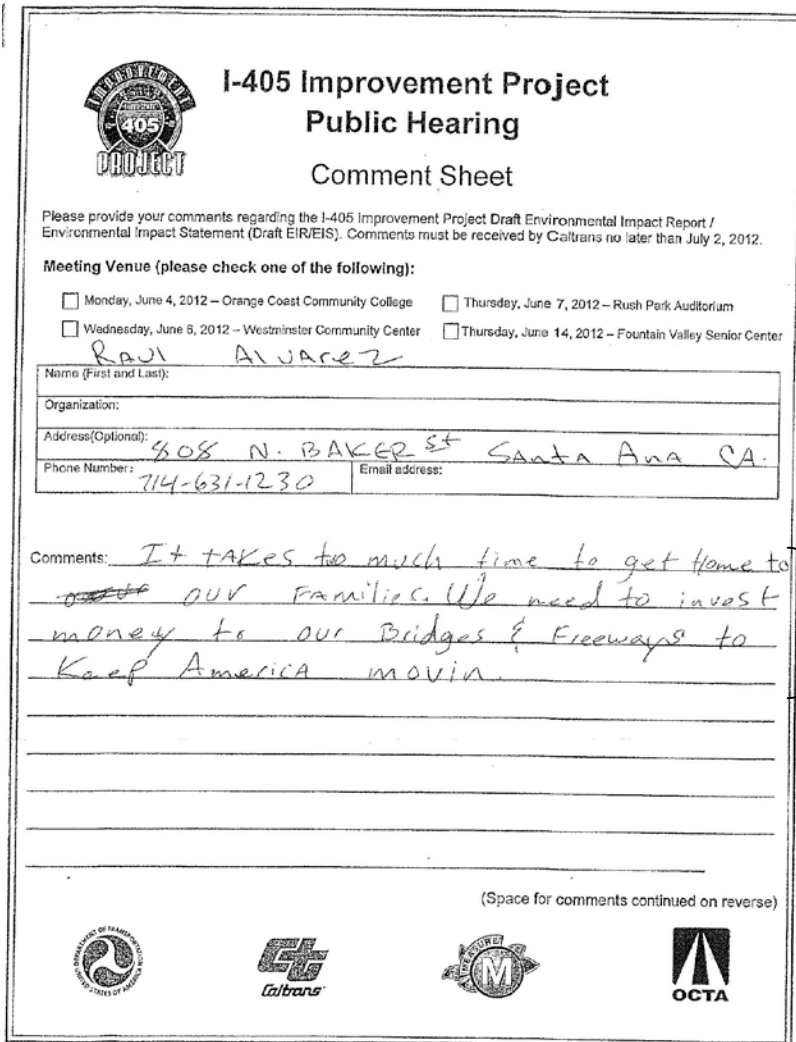 IMPROVEMENT
405
PROJECT
I-405 Improvement Project
Public Hearing
Comment Sheet
Please provide your comments regarding the I-405 Improvement Project Draft Environmental Impact Report /
Environmental Impact Statement (Draft EIR/EIS). Comments must be received by Caltrans no later than July 2, 2012.
Meeting Venue (please check one of the following):
Monday, June 4, 2012 – Orange Coast Community College Thursday, June 7, 2012 – Rush Park Auditorium
Wednesday, June 6, 2012 – Westminster Community Center Thursday, June 14, 2012 – Fountain Valley Senior Center
RAUl AlvArez
Name (First and Last):
Organization:
Address(Optional): 808 N. BAKER St SAntA AnA CA.
Phone Number: 714-631-1230 Email address:
Comments: It tAKes to much time to get Home to
our FAmilies. We need to invest
money to our Bridges & Freeways to
Keep AmericA movin.
(Space for comments continued on reverse)
DEPARTMENT OF TRANSPORTATION
UNITED STATES OF AMERICA
Caltrans
MEASURE
M
OCTA